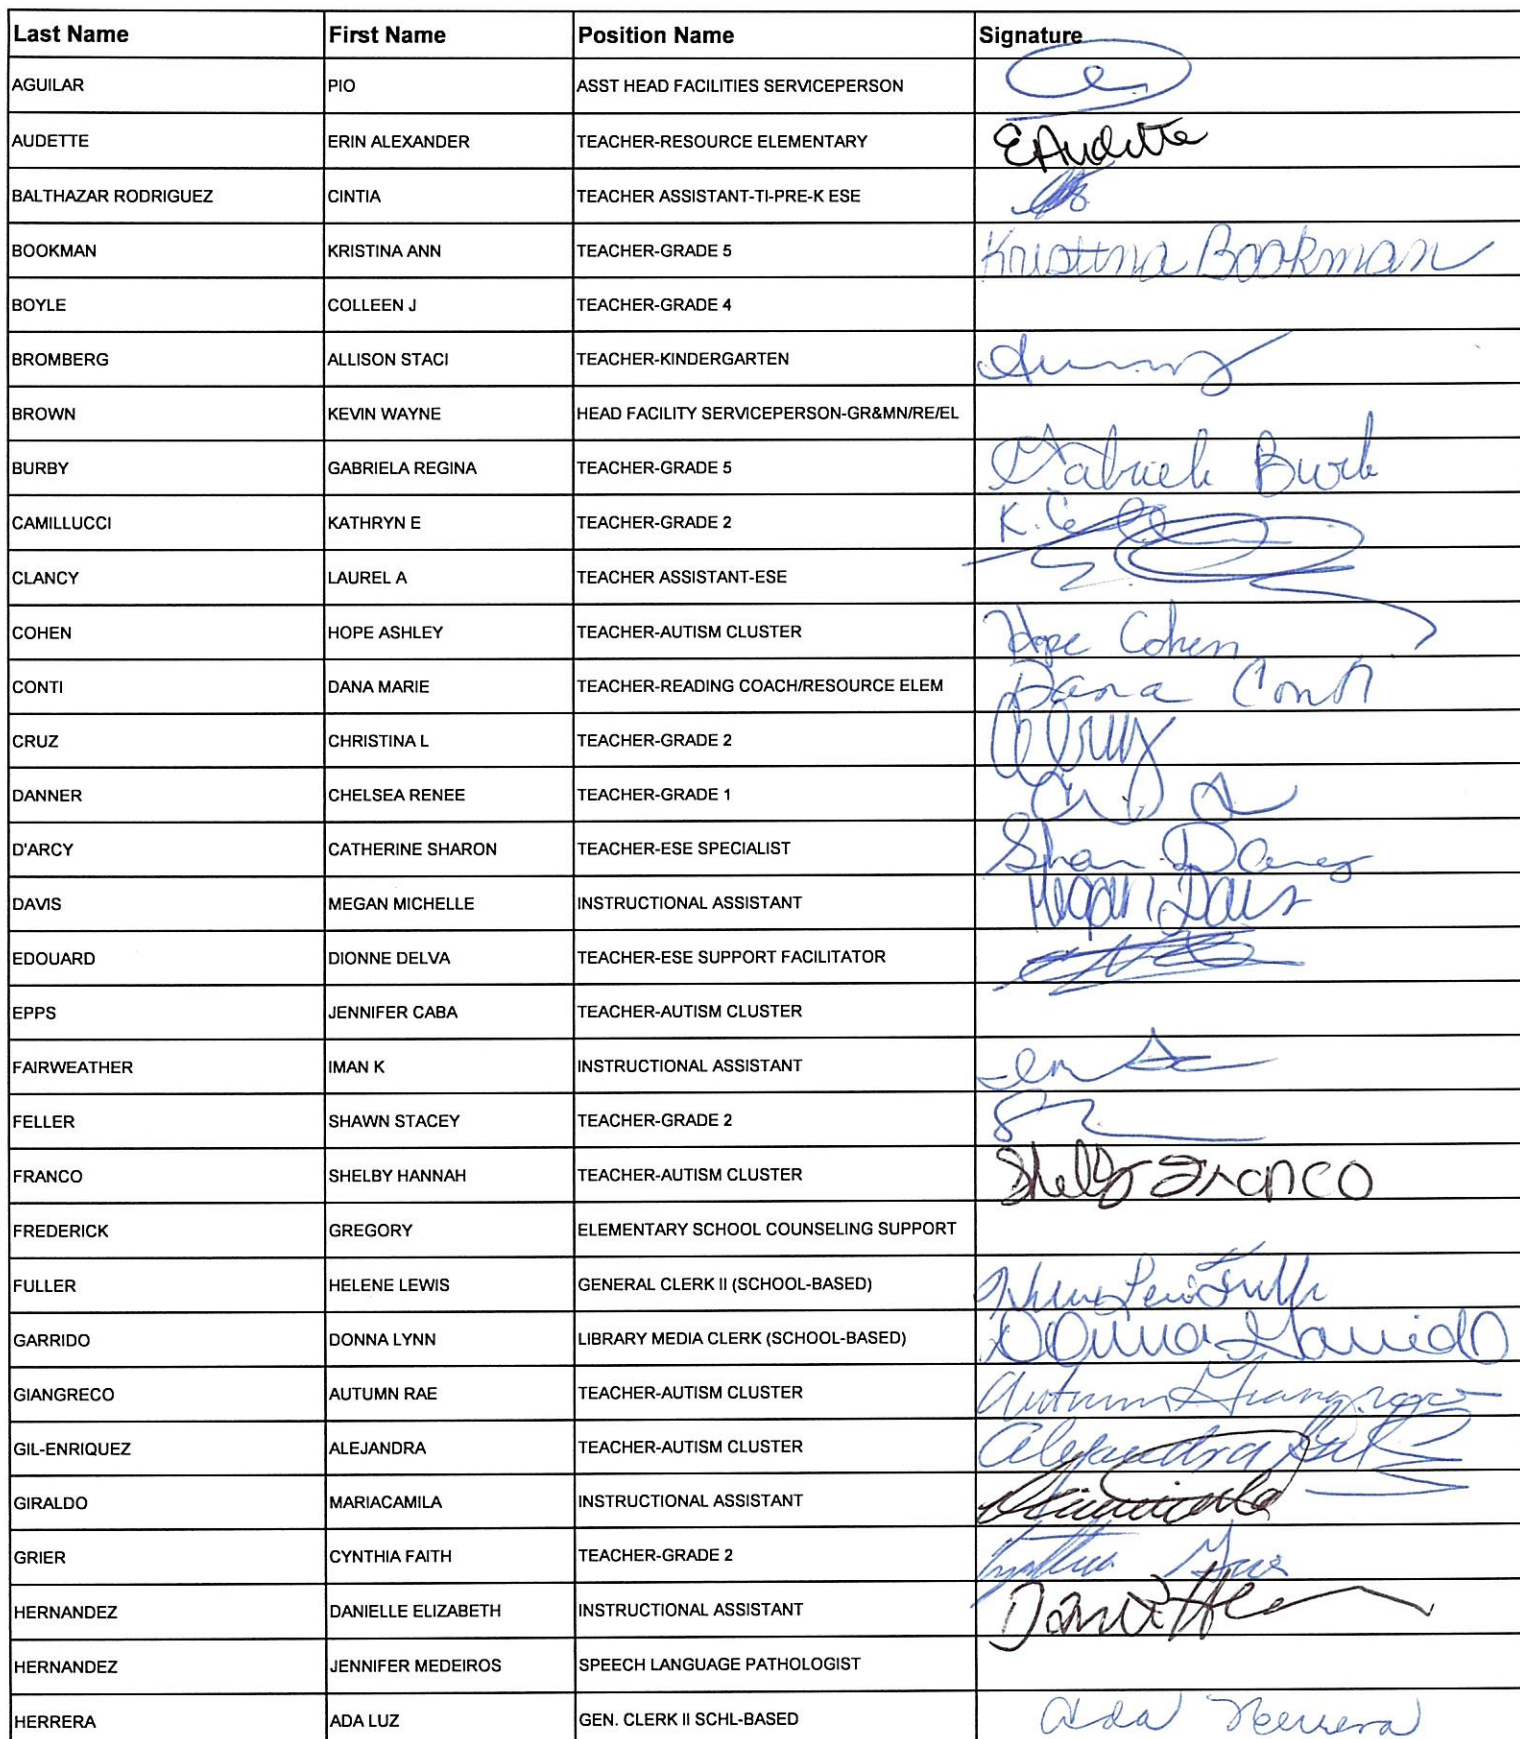 Last Name First Name Position Name Signature
AGUILAR PIO ASST HEAD FACILITIES SERVICEPERSON
AUDETTE ERIN ALEXANDER TEACHER-RESOURCE ELEMENTARY EAudette
BALTHAZAR RODRIGUEZ CINTIA TEACHER ASSISTANT-TI-PRE-K ESE
BOOKMAN KRISTINA ANN TEACHER-GRADE 5 Kristina Bookman
BOYLE COLLEEN J TEACHER-GRADE 4
BROMBERG ALLISON STACI TEACHER-KINDERGARTEN
BROWN KEVIN WAYNE HEAD FACILITY SERVICEPERSON-GR&MN/RE/EL
BURBY GABRIELA REGINA TEACHER-GRADE 5
CAMILLUCCI KATHRYN E TEACHER-GRADE 2 K.
CLANCY LAUREL A TEACHER ASSISTANT-ESE
COHEN HOPE ASHLEY TEACHER-AUTISM CLUSTER Hope Cohen
CONTI DANA MARIE TEACHER-READING COACH/RESOURCE ELEM Dana Conti
CRUZ CHRISTINA L TEACHER-GRADE 2 CCruz
DANNER CHELSEA RENEE TEACHER-GRADE 1
D'ARCY CATHERINE SHARON TEACHER-ESE SPECIALIST
DAVIS MEGAN MICHELLE INSTRUCTIONAL ASSISTANT Megan Davis
EDOUARD DIONNE DELVA TEACHER-ESE SUPPORT FACILITATOR
EPPS JENNIFER CABA TEACHER-AUTISM CLUSTER
FAIRWEATHER IMAN K INSTRUCTIONAL ASSISTANT
FELLER SHAWN STACEY TEACHER-GRADE 2
FRANCO SHELBY HANNAH TEACHER-AUTISM CLUSTER Shelby Franco
FREDERICK GREGORY ELEMENTARY SCHOOL COUNSELING SUPPORT
FULLER HELENE LEWIS GENERAL CLERK II (SCHOOL-BASED)
GARRIDO DONNA LYNN LIBRARY MEDIA CLERK (SCHOOL-BASED) Donna Garrido
GIANGRECO AUTUMN RAE TEACHER-AUTISM CLUSTER Autumn Giangreco
GIL-ENRIQUEZ ALEJANDRA TEACHER-AUTISM CLUSTER Alejandra Gil
GIRALDO MARIACAMILA INSTRUCTIONAL ASSISTANT
GRIER CYNTHIA FAITH TEACHER-GRADE 2 Cynthia Grier
HERNANDEZ DANIELLE ELIZABETH INSTRUCTIONAL ASSISTANT
HERNANDEZ JENNIFER MEDEIROS SPEECH LANGUAGE PATHOLOGIST
HERRERA ADA LUZ GEN. CLERK II SCHL-BASED Ada Herrera